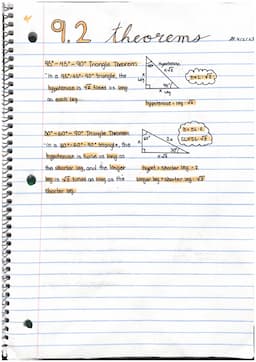 9.2 theorems
45°-45°-90° Triangle Theorem
"In a 45°-45°-90° triangle, the
hypotenuse is √2 times as long
as each leg.
hypotenuse
x√2
45°
45°
x
leg
x
leg
H=L·√2
hypotenuse = leg · √2
30°-60°-90° Triangle Theorem
"In a 30°-60°-90° triangle, the
hypotenuse is twice as long as
the shorter leg, and the longer
leg is √3 times as long as the
shorter leg.
60°
2x
x
30°
x√3
H=SL·2
LL=SL·√3
hypot = shorter leg · 2
longer leg = shorter leg · √3